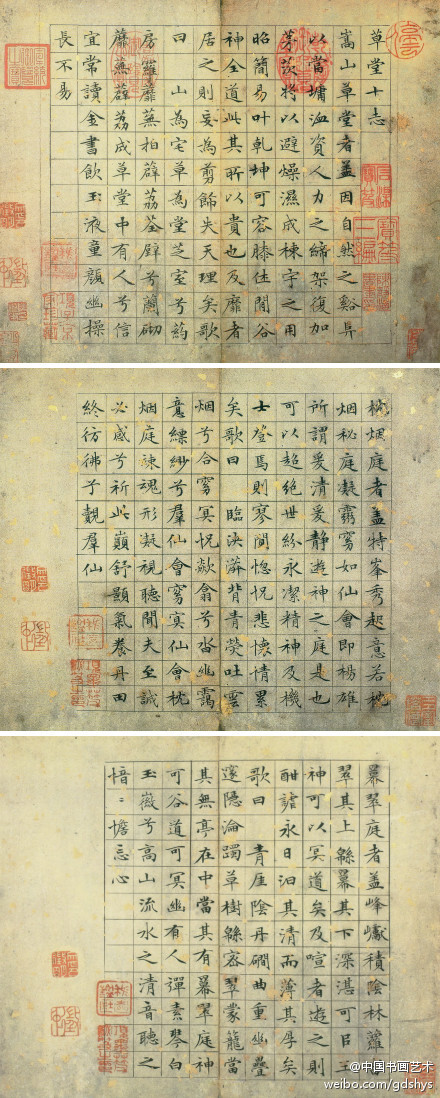 草堂十志
嵩山草堂者蓋因自然之谿阜
以當墉洫資人力之締架復加
茅茨將以避燥濕成棟宇之用
昭簡易叶乾坤可容膝休閒谷
神全道此其所以貴也及靡者
居之則妄為剪飾失天理矣歌
曰 山為宅草為堂芝室兮葯
房羅蘼蕪相薜荔荃壁兮蘭砌
蘼蕪薜荔成草堂中有人兮信
宜常讀金書飲玉液童顏幽操
長不易
枕烟庭者蓋特峯秀起意若枕
烟秘庭凝靄窅如仙會即楊雄
所謂爰清爰静遊神之庭是也
可以超絕世紛永潔精神及機
士登焉則寥闃惚怳悲懷情累
矣歌曰 臨泱漭背青熒吐雲
烟兮合窅冥怳欻翕兮沓幽靄
意縹緲兮羣仙會窅冥仙會枕
烟庭竦魂形凝視聽聞夫至誠
必感兮祈此巔舒顥氣養丹田
終彷彿兮覿羣仙
冪翠庭者蓋峰巘積陰林蘿
翠其上緜冪其下深湛可㠯王
神可以冥道矣及喧者遊之則
酣謔永日汩其清而薄其厚矣
歌曰 青厓陰丹磵曲重幽疊
邃隱淪躅草樹緜密翠蒙籠當
其無亭在中當其有冪翠庭神
可谷道可冥幽有人彈素琴白
玉徽兮高山流水之清音聽之
愔〻澹忘心
@中国书画艺术
weibo.com/gdshys